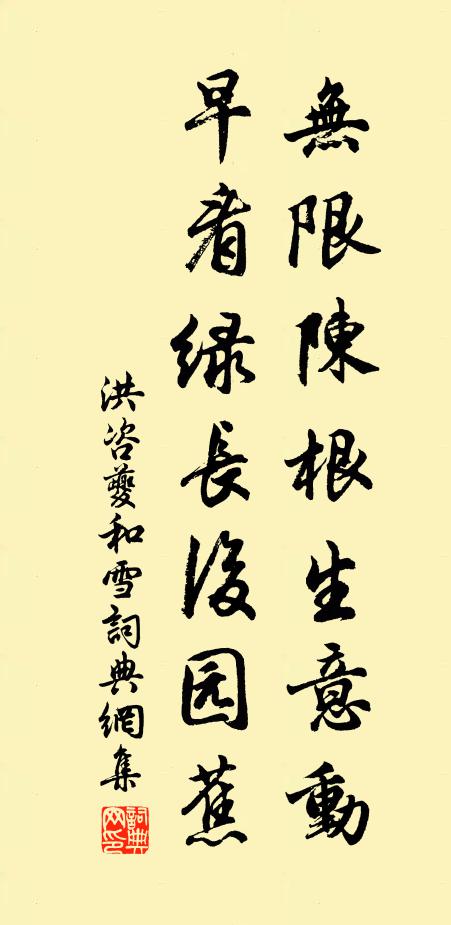 無限陳根生意動
早看绿長後园蕉
洪咨夔和雪詞典網集
詞典网印